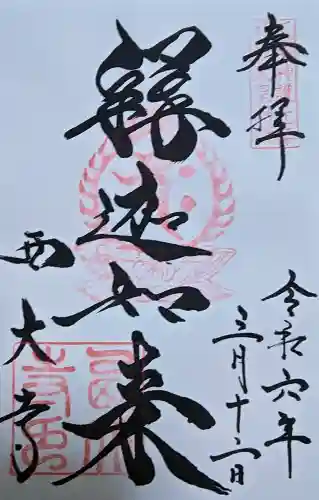 奉拝
令和六年
三月十二日
釋迦如来
西大寺